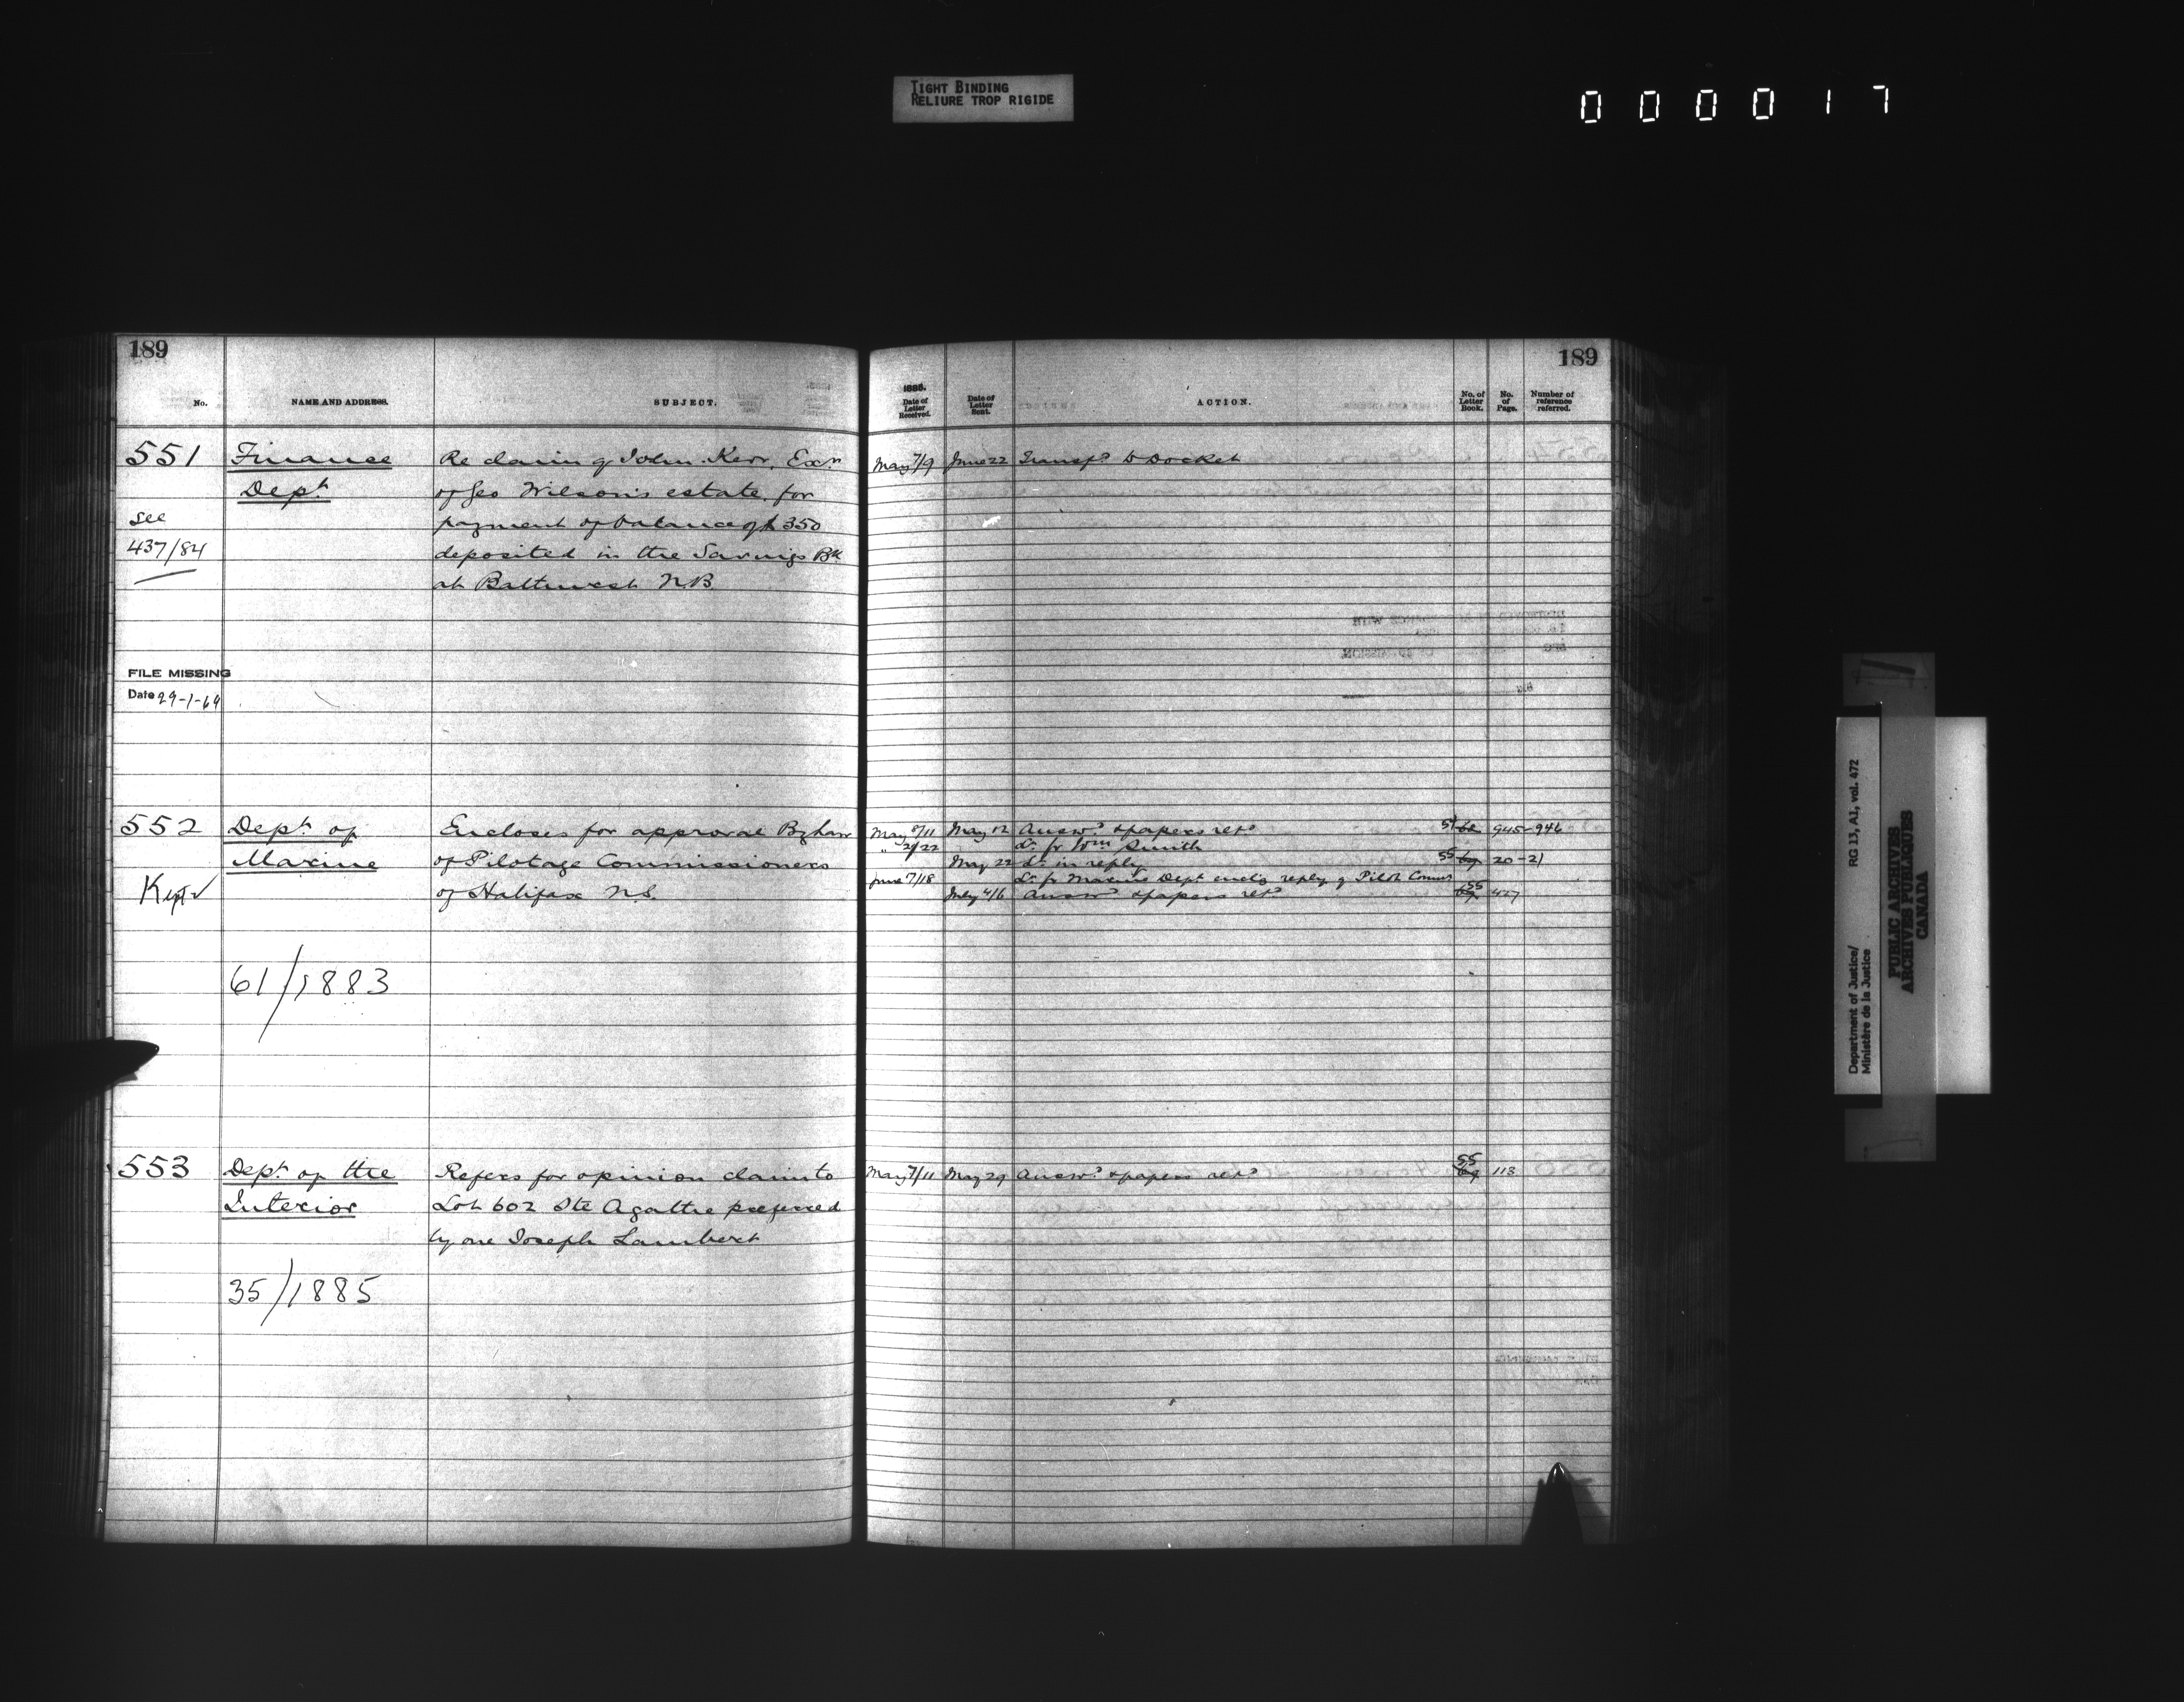 TIGHT BINDING
RELIURE TROP RIGIDE
000017
189
No.
NAME AND ADDRESS.
SUBJECT.
551
Finance
Dept
see
437/84
Re claim of John Kerr, Exr
of Geo Wilson's estate for
payment of balance of $350
deposited in the Savings Bk
at Bathurst N.B
FILE MISSING
Date 29-1-64
552
Dept of
Marine
Kept
61/1883
Encloses for approval Bylaw
of Pilotage Commissioners
of Halifax N.S.
553
Dept of the
Interior
35/1885
Refers for opinion claim to
Lot 602 Ste Agathe preferred
by one Joseph Lambert
189
1885.
Date of Letter Received.
Date of Letter Sent.
ACTION.
No. of Letter Book.
No. of Page.
Number of reference referred.
May 7/9 June 22 Transfd to Docket
May 9/11 May 12 Answd & papers retd 945-946
" 21/22 Lr fr Wm Smith
May 22 Lr in reply 55 20-21
June 7/18 Lr fr Marine Dept enclg reply of Pilot Commrs
July 4/6 Answd & papers retd 55 427
May 7/11 May 29 Answd & papers retd 55 113
Department of Justice/ RG 13, A1, vol. 472
Ministère de la Justice
PUBLIC ARCHIVES
ARCHIVES PUBLIQUES
CANADA